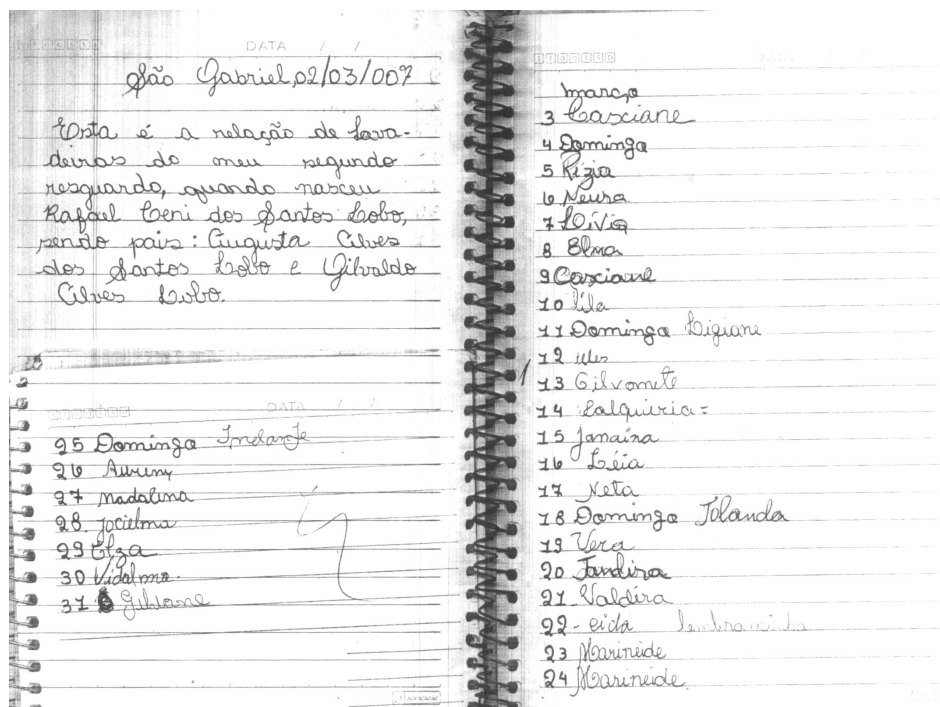 DATA / /
São Gabriel, 02/03/007
Esta é a relação de lava-
deiras do meu segundo
resguardo, quando nasceu
Rafael Ceni dos Santos Lobo,
sendo pais: Augusta Alves
dos Santos Lobo e Gilvaldo
Alves Lobo.
DATA / /
25 Domingo
26 Aureny
27 Madalena
28. Jocielma
29 Elza
30 Vidalma.
31 Gilviane
março
3 Casciane
4 Domingo
5 Rízia
6 Neura
7 Lívia
8 Elma
9 Casciane
10 Lila
11 Domingo Ligiane
12
13 Gilvonete
14 Valquiria =
15 Janaína
16 Léia
17 Neta
18 Domingo Iolanda
19 Vera
20 Jandira
21 Valdira
22 - cida lembrancinha
23 Marineide
24 Marineide